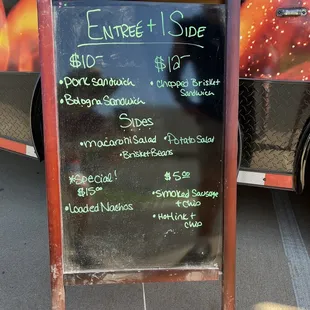 Entrée + 1 Side
$10-
$12-
• Pork sandwich
• Chopped Brisket
Sandwich
• Bologna Sandwich
Sides
• macaroni Salad
• Potato Salad
• Brisket Beans
*Special!
$15.00
$5.00
• Loaded Nachos
• Smoked Sausage
+ chip
• Hotlink +
chip